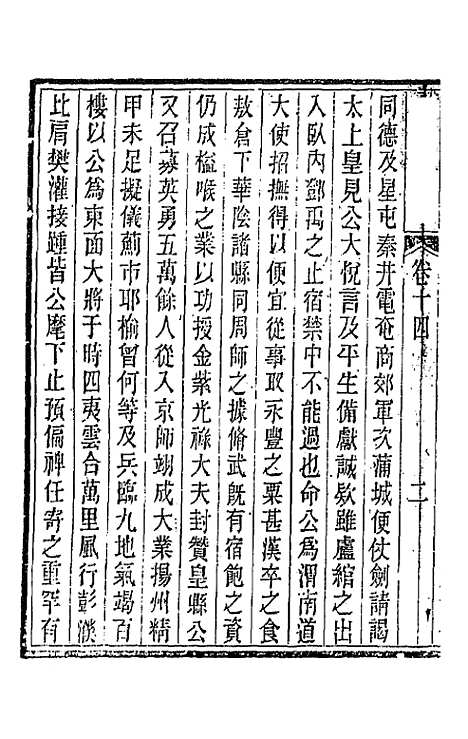 卷十四
二
同德及星屯秦井電奄商郊軍次蒲城便仗劍請謁
太上皇見公大悅言及平生備獻誠欵雖盧綰之出
入臥內鄧禹之止宿禁中不能過也命公爲渭南道
大使招撫得以便宜從事取永豐之粟甚漢卒之食
敖倉下華陰諸縣同周師之據脩武旣有宿飽之資
仍成搤喉之業以功授金紫光祿大夫封贊皇縣公
又召募英勇五萬餘人從入京師翊成大業揚州精
甲未足擬儀薊市耶榆曾何等及兵臨九地氣竭百
樓以公爲東面大將于時四夷雲合萬里風行彭濮
比肩樊灌接踵皆公麾下止預偏裨任寄之重罕有